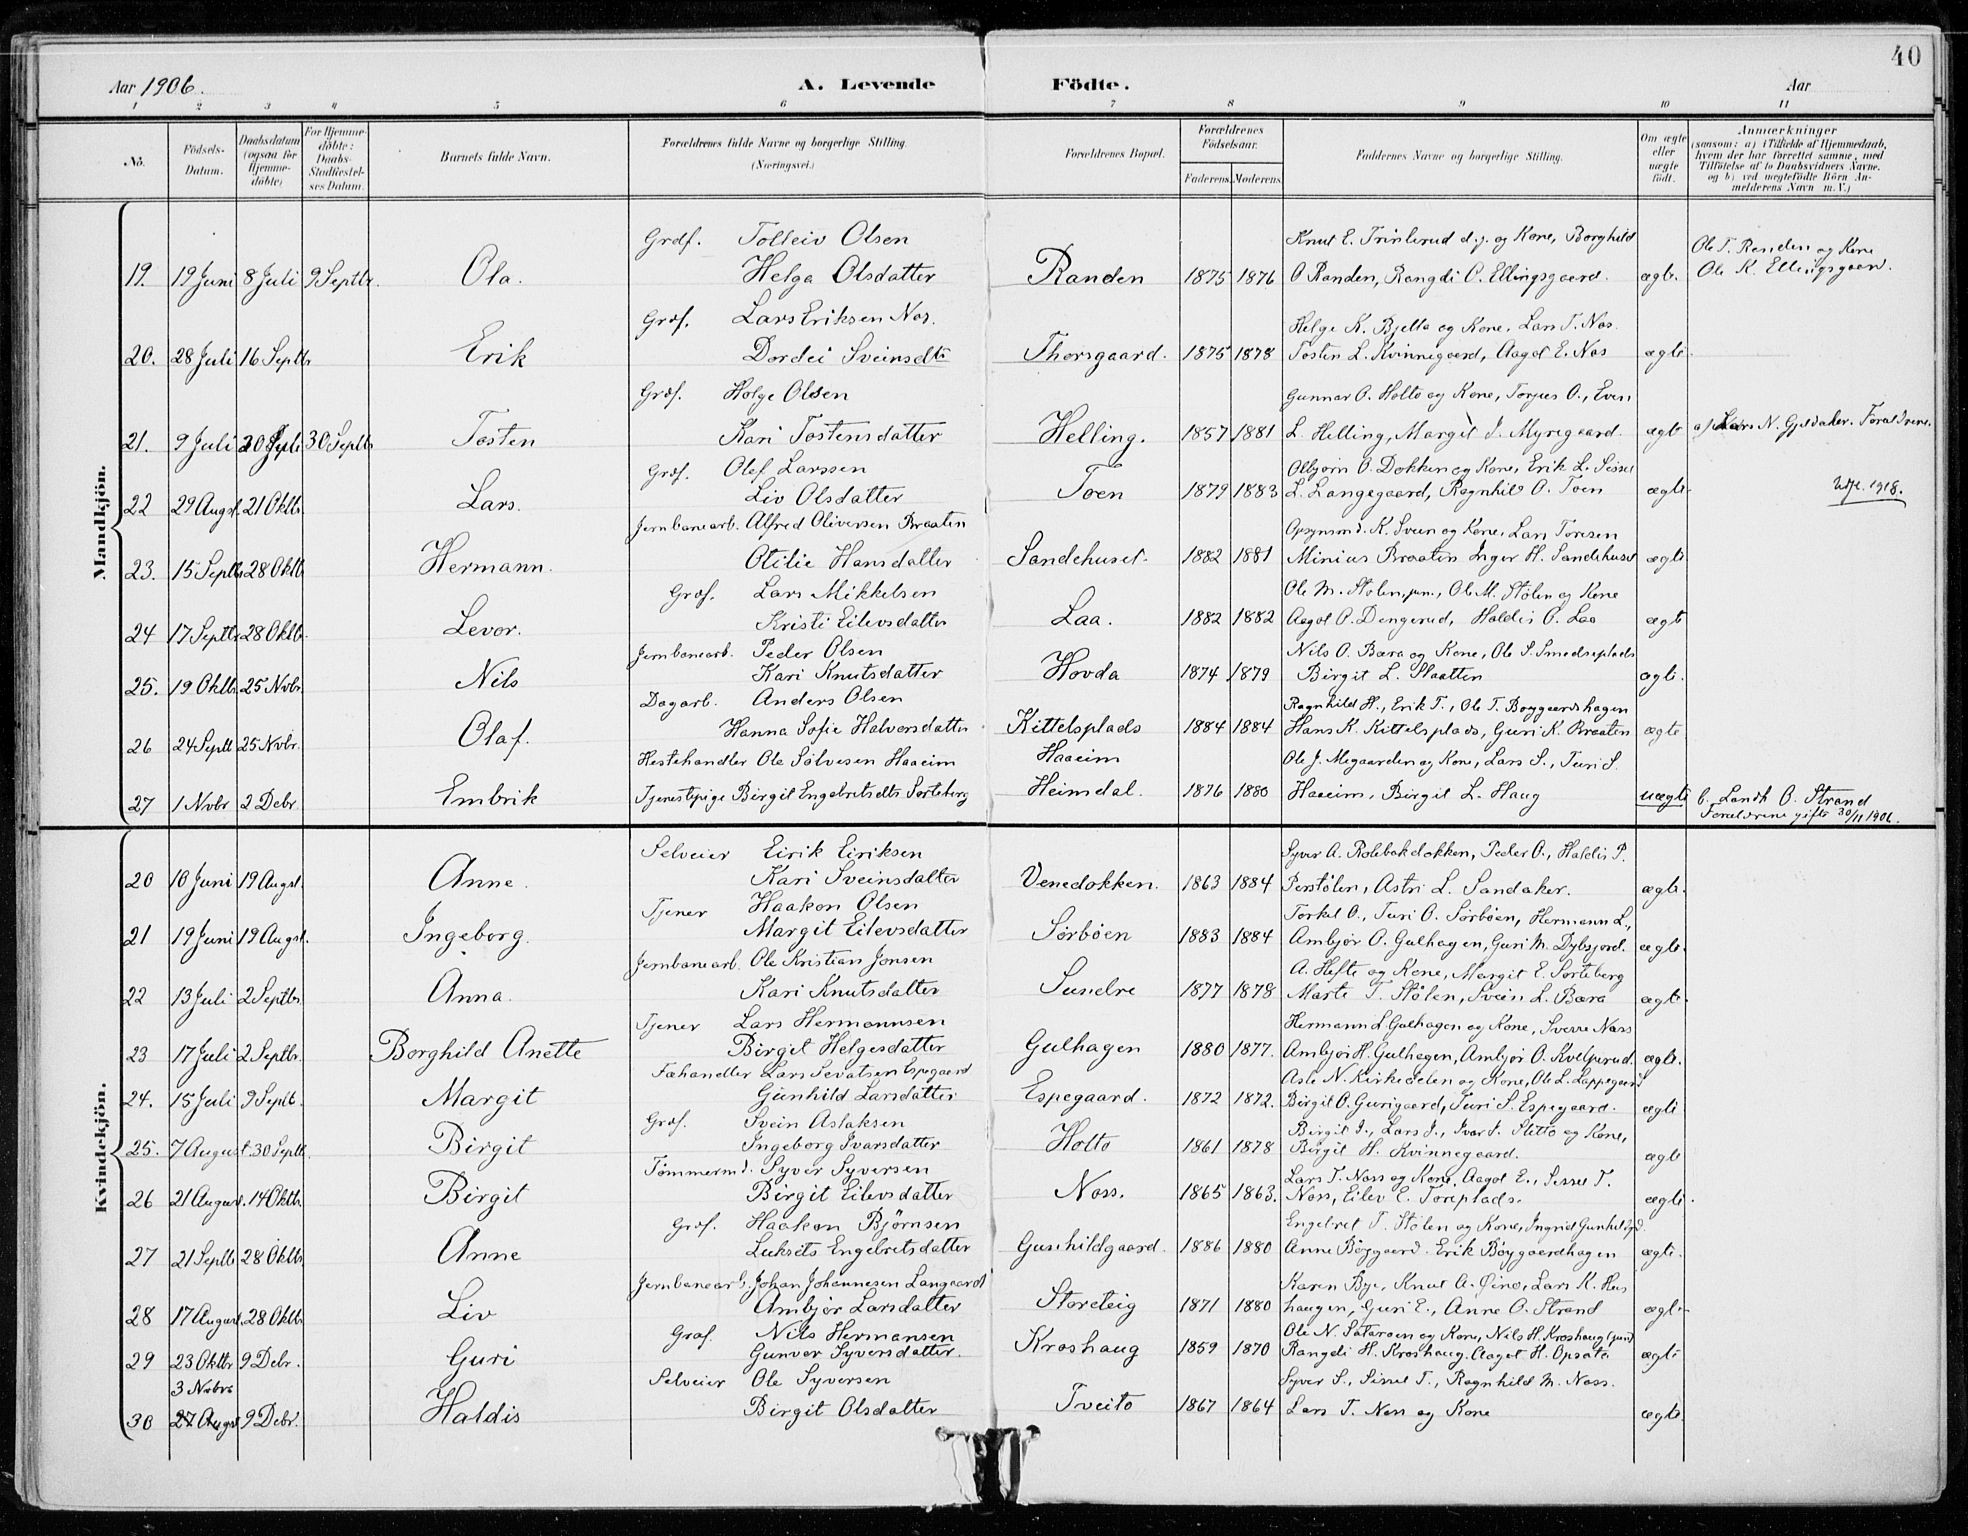 40
Aar 1906. A. Levende Födte. Aar
1 2 3 4 5 6 7 8 9 10 11
No. Födsels-Datum. Daabsdatum (ogsaa for Hjemme-döbte) For Hjemme-döbte: Daabs-Stadfæstel-ses Datum. Barnets fulde Navn. Forældrenes fulde Navne og borgerlige Stilling. (Næringsvei.) Forældrenes Bopæl. Forældrenes Födselsaar. Faderens. Moderens. Faddernes Navne og borgerlige Stilling. Om ægte eller uægte födt. Anmærkninger (saasom: a) i Tilfælde af Hjemmedaab, hvem der har forrettet samme, med Tilföielse af to Daabsvidners Navne. og b) ved uægtefödte Börn An-melderens Navn m. V.)
Mandkjön.
Grdf. Tolleiv Olsen Knut E. Trinterud d.y. og Kone, Borghild Ole T. Randen og Kone
19. 19 Juni 8 Juli 9 Septbr. Ola. Helga Olsdatter Randen 1875 1876 O Randen, Rangdi O. Ellingsgaard. ægte. Ole K. Ellingsgaard.
Grdf. Lars Eriksen Nos. Helge K. Bjella og Kone, Lars T. Nos.
20. 28 Juli 16 Septbr Erik Dordei Sveinsdtr Thorsgaard. 1875 1878 Tosten L. Kvinnegaard, Aagot E. Nos ægte.
Grdf. Helge Olsen Gunnar O. Holto og Kone, Torjus O., Even
21. 9 Juli 30 Septb 30 Septbr Tosten Kari Tostensdatter Helling. 1857 1881 L. Helling, Margit J. Myregaard. ægte a) Lars N. Gjeldaker. Forældrene.
Grdf. Olef Larssen Olbjørn O. Dokken og Kone, Erik L. Sissel
22 29 Augst. 21 Oktb. Lars. Liv Olsdatter Toen 1879 1883 L. Langegaard, Ragnhild O. Toen ægte. Utfl. 1918.
Jernbanearb. Alfred Oliversen Braaten Opsynsmd. K. Sveen og Kone, Lars Toresen
23. 15 Septb 28 Oktb Hermann. Otilie Hansdatter Sandehuset. 1882 1881 Minius Braaten Inger H. Sandehuset ægte
Grdf. Lars Mikkelsen Ole M. Stølen, jun., Ole M. Stølen og Kone
24 17 Septbr 28 Oktb. Levor. Kristi Eilevsdatter Laa. 1882 1882 Aagot O. Dengerud, Haldis O. Laa ægte
Jernbanearb. Peder Olsen Nils O. Bæra og Kone, Ole S. Smedseplads
25. 19 Oktb. 25 Nvbr. Nils Kari Knutsdatter Hovda 1874 1879 Birgit L. Slaatten ægte.
Dagarb. Anders Olsen Ragnhild H., Erik T., Ole T. Bøygaardshagen
26 24 Septb 25 Nvbr. Olaf. Hanna Sofie Halvorsdatter Kittelsplads 1884 1884 Hans K. Kittelsplads, Guri K. Braaten ægte
Hestehandler Ole Sølvesen Haaeim Haaeim Ole J. Megaarden og Kone, Lars S., Turi S.
27 1 Nvbr 2 Debr. Embrik Tjenestepige Birgit Engebretsdtr Sorteberg Heimdal. 1876 1880 Haaeim, Birgit L. Haug uægte b. Landh O. Strand
Forældrene gifte 30/11 1906.
Kvindekjön.
Selveier Eirik Eiriksen Syver A. Rotebakdokken, Peder O., Haldis P.
20 10 Juni 19 Augst. Anne. Kari Sveinsdatter Venedokken. 1863 1884 Perstølen, Astri L. Sandaker. ægte.
Tjener Haakon Olsen Torkel O., Turi O. Sørbøen, Hermann L.,
21 19 Juni 19 Augst. Ingeborg. Margit Eilevsdatter Sørbøen 1883 1884 Ambjør O. Gulhagen, Guri M. Dybsjord. ægte.
Jernbanearb. Ole Kristian Jonsen A. Hefte og Kone, Margit E. Sorteberg
22 13 Juli 2 Septbr. Anna. Kari Knutsdatter Sundre 1877 1878 Marte T. Stølen, Svein L. Bæra ægte.
Tjener Lars Hermannsen Hermann L. Gulhagen og Kone, Sverre Næss
23 17 Juli 2 Septbr. Borghild Anette Birgit Helgesdatter Gulhagen 1880 1877. Ambjør H. Gulhagen, Ambjør O. Kvelprud. ægte.
Fæhandler Lars Sevatsen Espegaard Asle N. Kirkedelen og Kone, Ole L. Lappegaard
24. 15 Juli 9 Septb. Margit Gunhild Larsdatter Espegaard. 1872 1872. Birgit O. Gurigaard, Turi S. Espegaard. ægte
Grdf. Svein Aslaksen Birgit I., Lars I., Ivar I. Sletto og Kone,
25. 7 August 30 Septb. Birgit Ingeborg Ivarsdatter Holto 1861 1878 Birgit H. Kvinnegaard. ægte
Tømmermd. Syver Syversen Lars T. Næss og Kone, Aagot E., Sissel T.
26 21 August. 14 Oktb. Birgit Birgit Eilevsdatter Næss. 1865 1863. Næss, Eilev E. Toreplads. ægte.
Grdf. Haakon Bjørnsen Engebret T. Stølen og Kone, Ingrid Gunhildgd.
27 21 Septb 28 Oktb. Anne Engebretsdatter Gunhildgaard. 1886 1880 Anne Bøygaard. Erik Bøygaardhagen ægte.
Jernbanearb. Johan Johannesen Langaard Karen Bye, Knut A. Øino, Lars K. Hus
28 17 August. 28 Oktb. Liv Ambjør Larsdatter Storeteig 1871 1880 haugen, Guri E., Anne O. Strand ægte
Grdf. Nils Hermansen Ole N. Sataroen og Kone, Nils H. Kroshaug (jun)
29 23 Oktbr 9 Debr. Guri Gunver Syversdatter. Kroshaug 1859 1870 Rangdi H. Kroshaug. Aagot H. Opsata ægte
3 Nvbr. Selveier Ole Syversen Syver S., Sissel T., Ragnhild M. Næss.
30 27 Augst 9 Debr. Haldis Birgit Olsdatter Tveito 1867 1864 Lars T. Næss og Kone ægte.